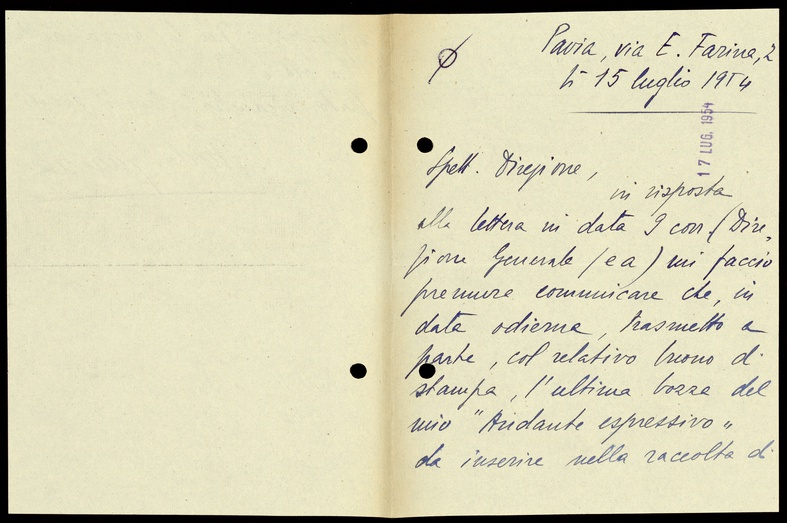 Pavia, via E. Farina, 2
lì 15 luglio 1954
17 LUG. 1954
Spett. Direzione,
in risposta
alla lettera in data 9 corr. (Dire=
zione Generale /ea) mi faccio
premura comunicare che, in
data odierna, trasmetto a
parte, col relativo buono di
stampa, l'ultima bozza del
mio "Andante espressivo„
da inserire nella raccolta di